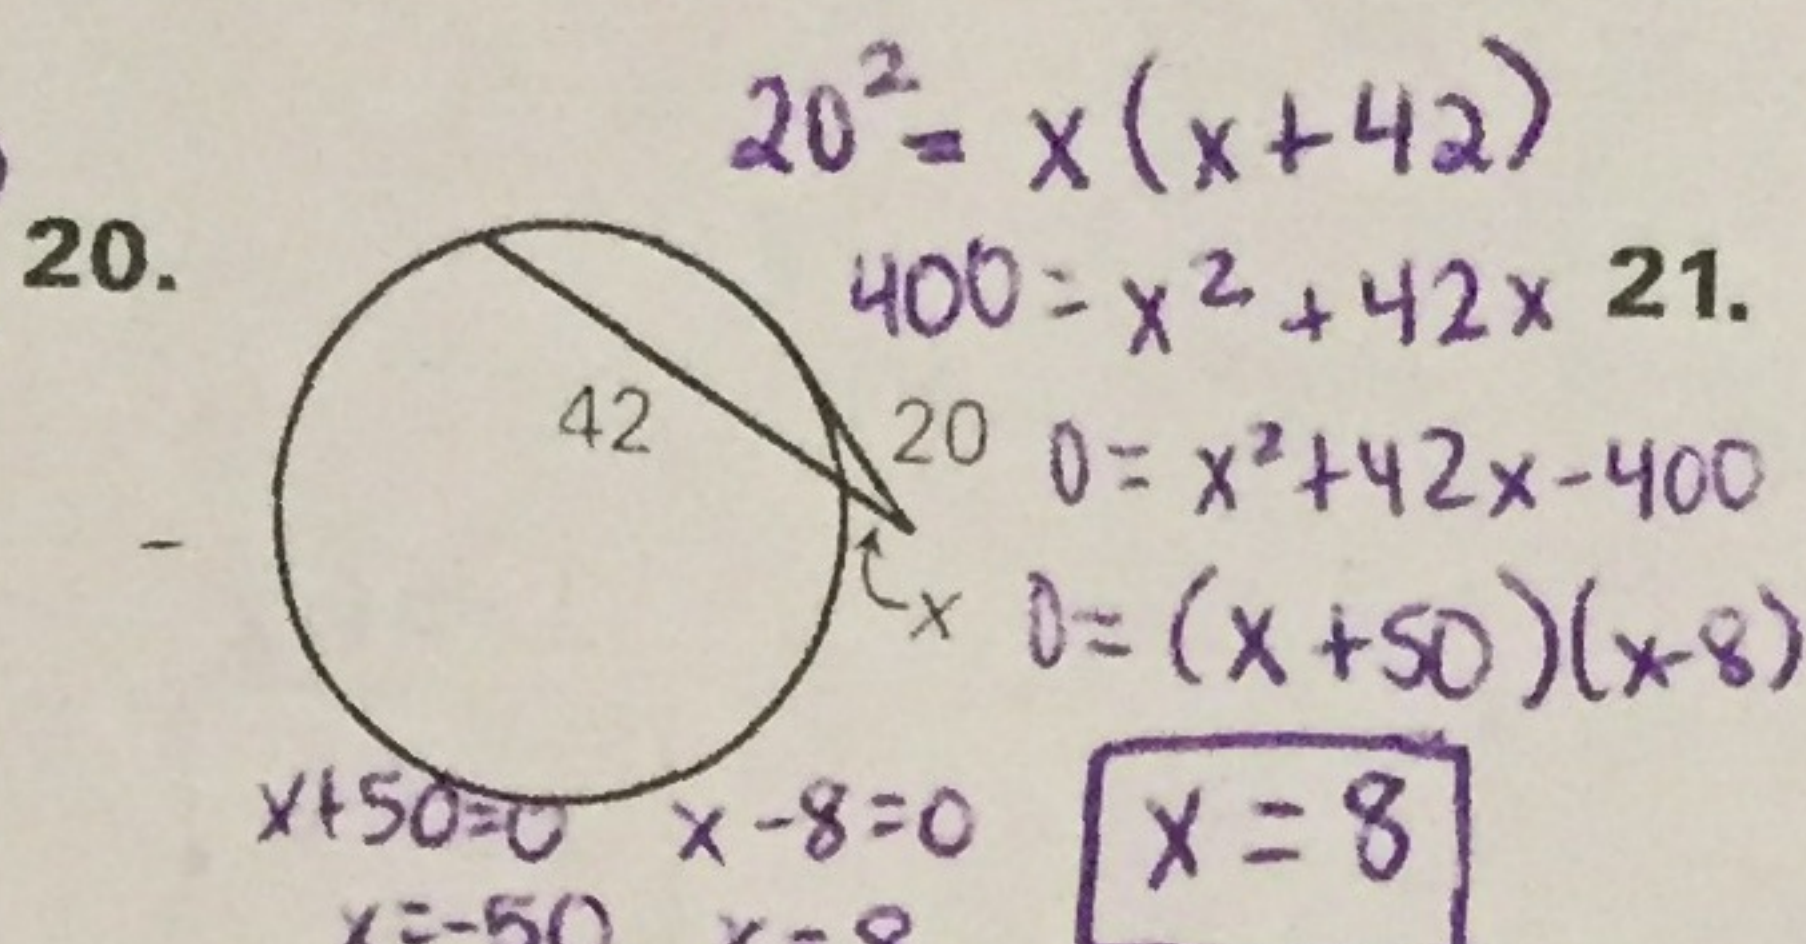 20² = x(x+42)
20.
400 = x² + 42x
21.
42
20
0 = x² + 42x - 400
x
0 = (x + 50)(x - 8)
x+50=0
x - 8 = 0
x = 8
x = -50